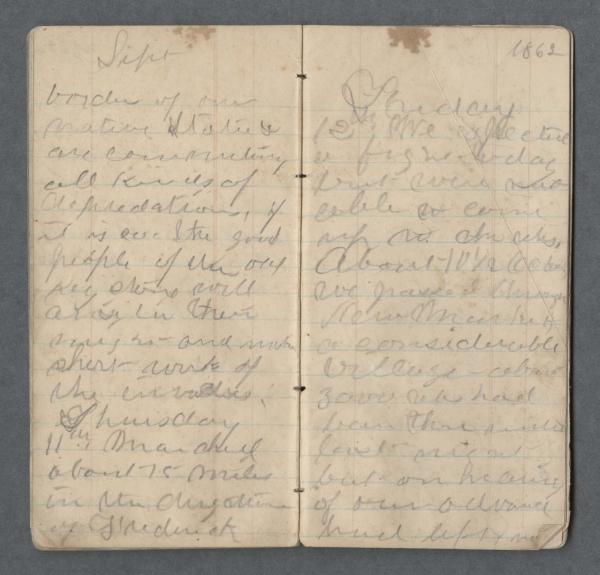 Sept
border of our
native State &
are committing
all kinds of
depredations, if
it is so the good
people of the old
Key stone will
arise in their
might and make
short work of
the invaders.
Thursday
11th Marched
about 15 miles
in the direction
of Frederick
1862
Friday
12th We expected
a fight to day
but were not
able to come
up to the rebs.
About 10 1/2 Oclock
we passed through
New Market
a considerable
village about
rebs had
been there
last night
but on hearing
of our advance
had left